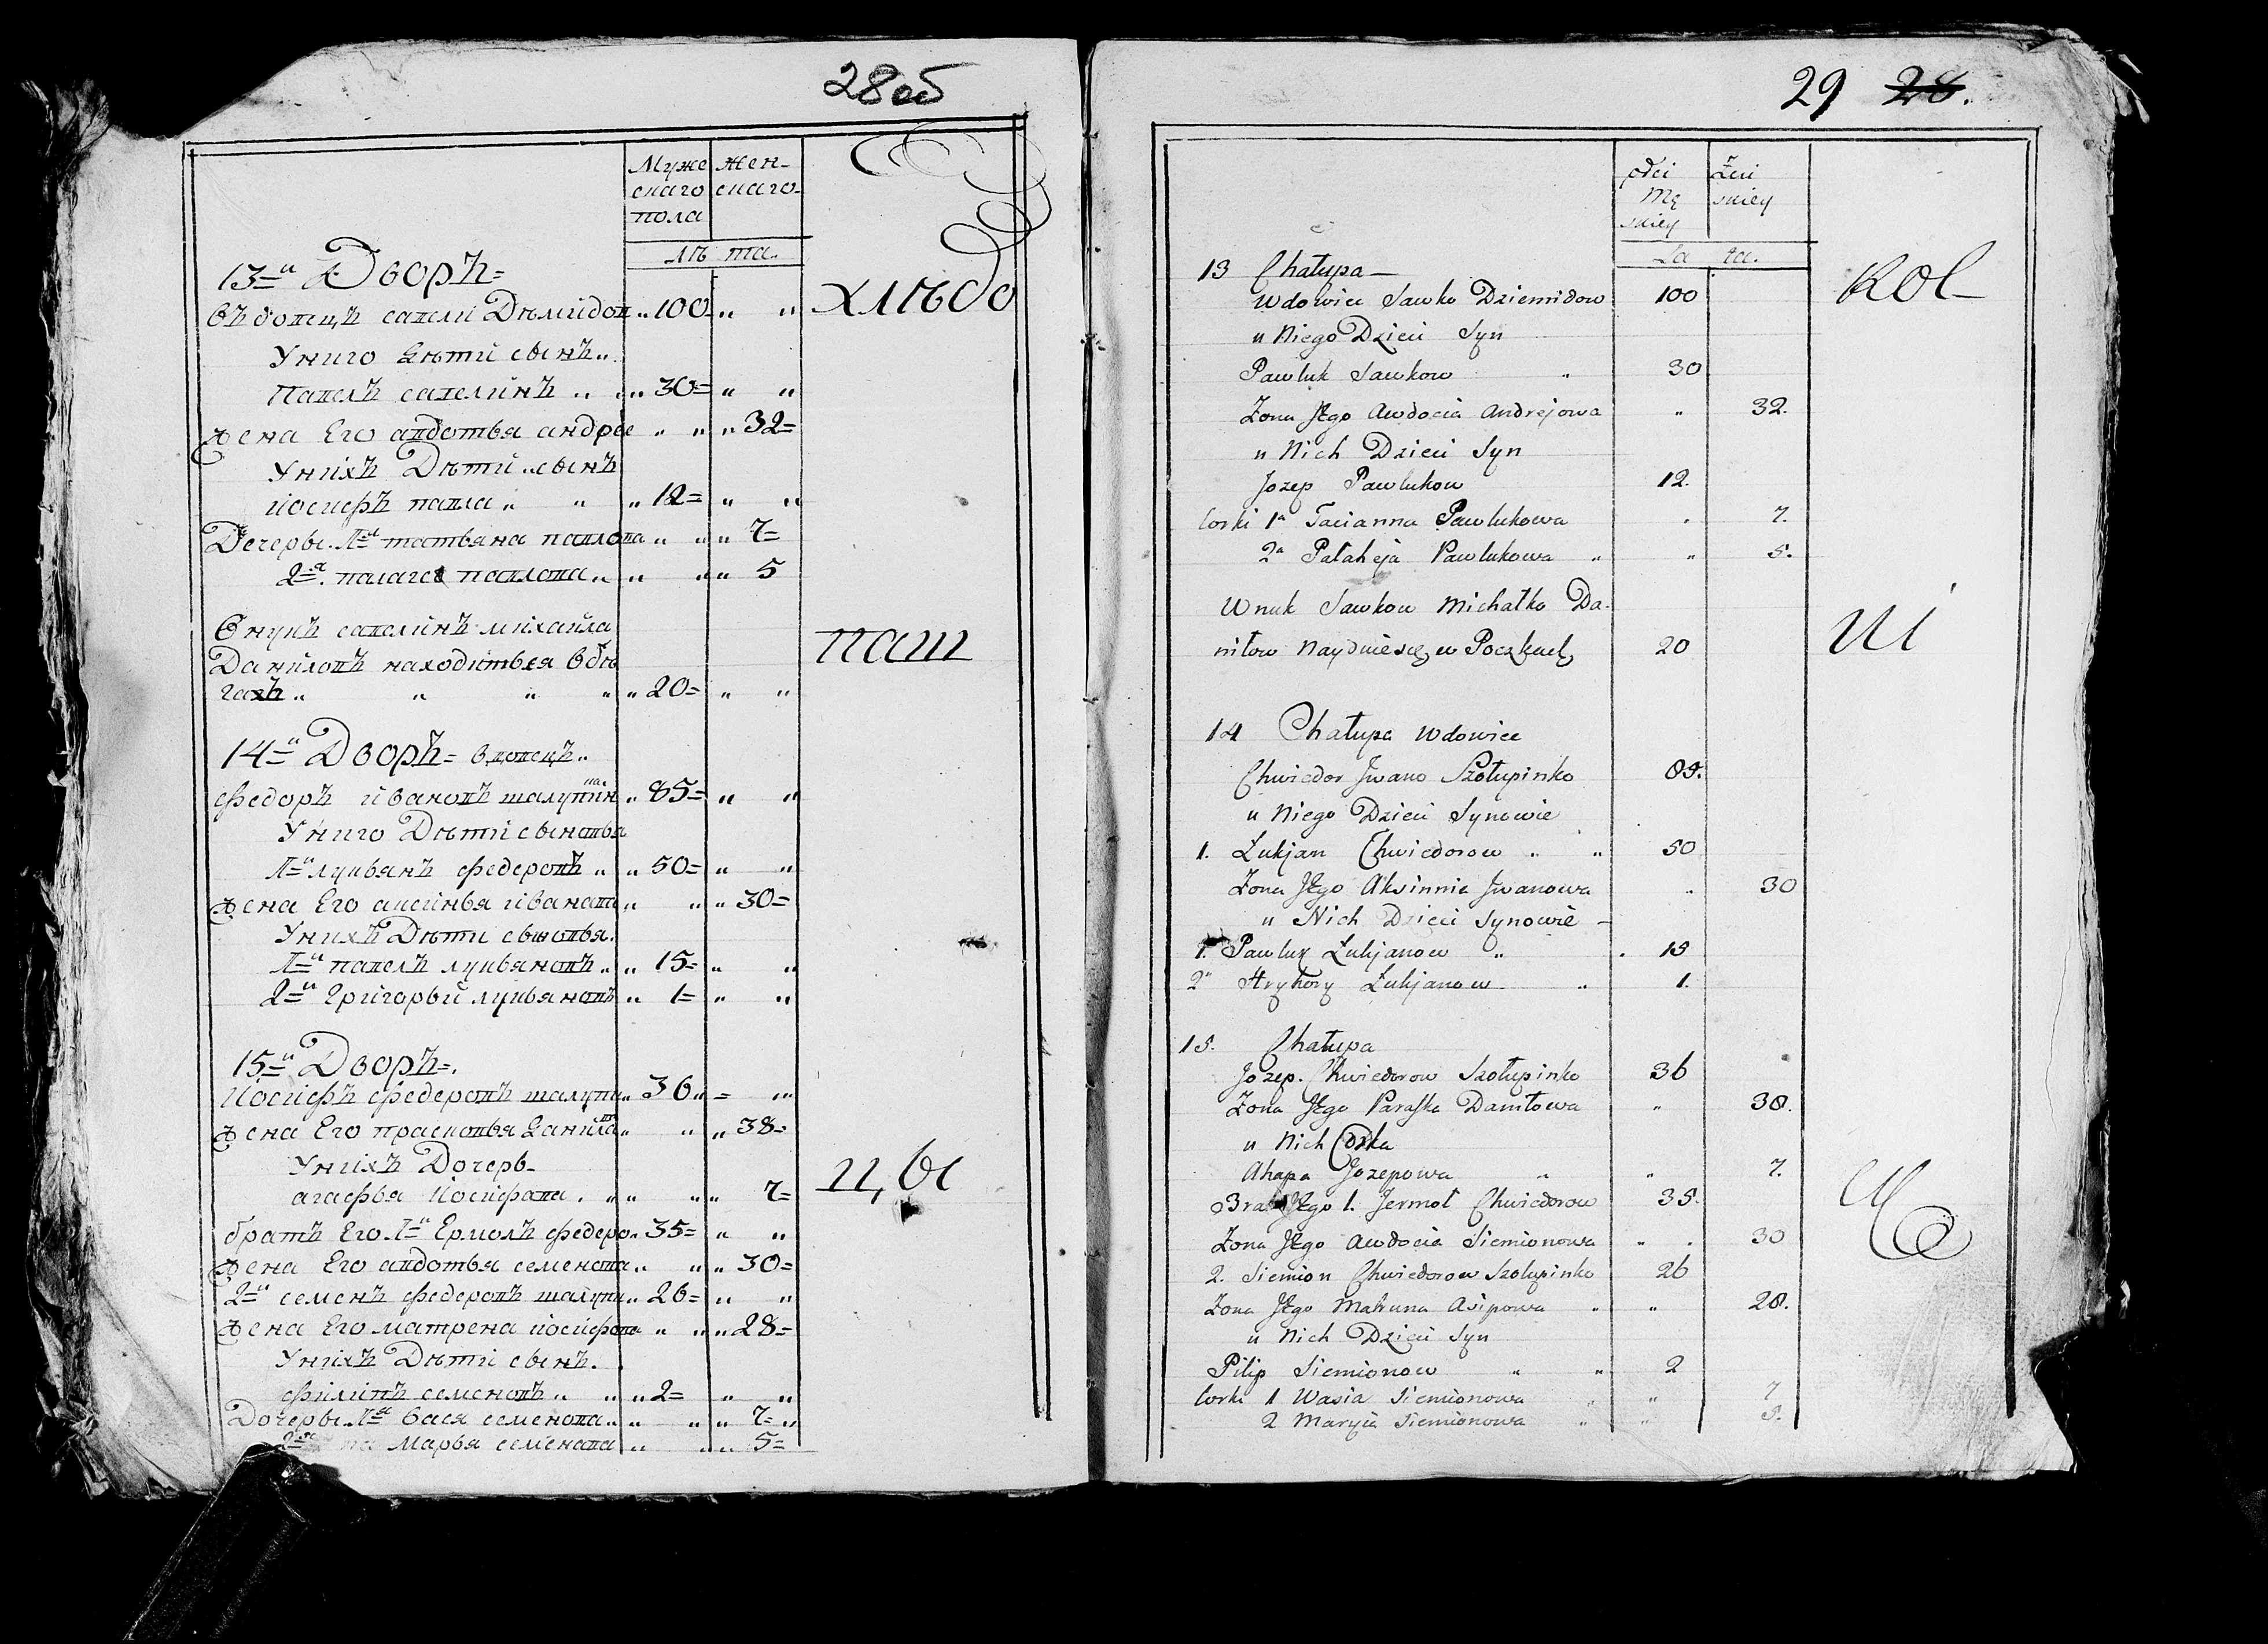 28 об
Муже женскаго
скаго скаго
пола
лѣ та.
13й Дворъ
вѣдовецъ савели Дѣмидов 100
Унего Дѣти сынъ
Павелъ савелинъ 30
жена Его авдотья андрее 32
Унихъ Дѣти сынъ
иосифъ павла 12
Дечеры 1я татьяна павлова 7
2я палагея павлова 5
Внукъ савелинъ михайла
Данйловъ находитьея вбѣ
гахъ 20
14й Дворъ вдовецъ
федоръ ивановъ шалупин 85
Унего Дѣти сыновья
1й лукьянъ федеровъ 50
жена Его аксинья иванова 30
Унихъ Дѣти сыновья
1й павелъ лукьяновъ 15
2й Григорьий лукьяновъ 1
15й Дворъ
Иосифъ федеровъ шалупи 36
жена Его прасковья Данила 38
Унихъ Дочерь
агафья Иосифова 7
братъ Его 1й Ермолъ федеро 35
жена Его авдотья семенова 30
2й семенъ федеровъ шалупи 26
жена Его матрена иосифова 28
Унихъ Дѣти сынъ
филипъ семеновъ 2
Дочеры 1я Вася семенова 7
2я Марья семенова 5
хлѣбо
паш
цы
29 28.
płci Żeń
Mę skiey
skiey
La ta.
13 Chałupa
Wdowiec Sawka Dziemidow 100
u Niego Dzieci Syn
Pawluk Sawkow 30
Zona Jego Awdocia Andrejowa 32.
u Nich Dzieci Syn
Jozep Pawlukow 12.
Corki 1a Tacianna Pawlukowa 7.
2a Pałaheja Pawlukowa 5.
Wnuk Sawkow Michałko Da-
niłow Nayduiesię w Poczkach 20
14 Chałupa Wdowiec
Chwiedor Jwano Szołupinko 85.
u Niego Dzieci Synowie
1. Łukjan Chwiedorow 50
Zona Jego Aksinnia Jwanowa 30
u Nich Dzieci Synowie
1. Pawluk Łukjanow 15
2 Hryhory Łukjanow 1.
15. Chałupa
Jozep Chwiedorow Szołupinko 36
Zona Jego Paraska Daniłowa 38.
u Nich Corka
Ahapa Jozepowa 7.
Brat Jego 1. Jermoł Chwiedorow 35.
Zona Jego Awdocia Siemionowa 30
2. Siemion Chwiedorow Szołupinko 26
Zona Jego Matruna Asipowa 28.
u Nich Dzieci Syn
Pilip Siemionow 2
Corki 1 Wasia Siemionowa 7
2 Maryia Siemionowa 5.
Rol
ni
cy